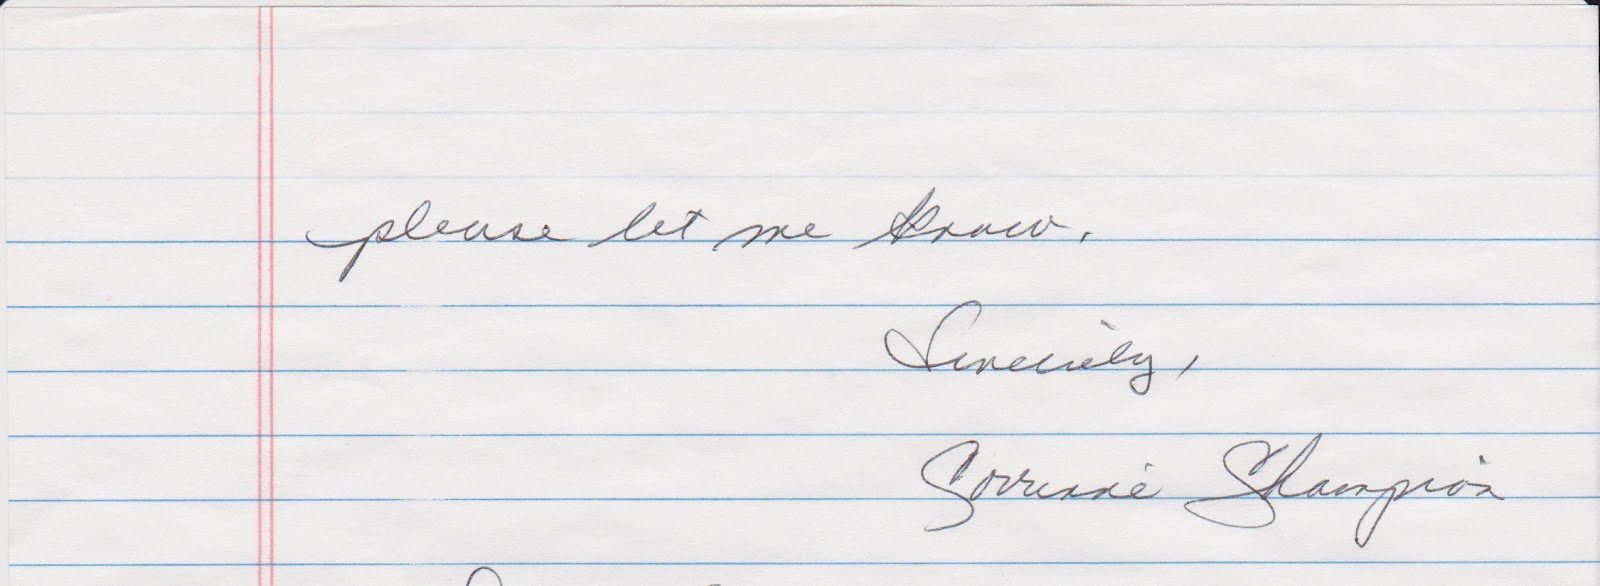 please let me know.
Sincerely,
Corrinne Champion